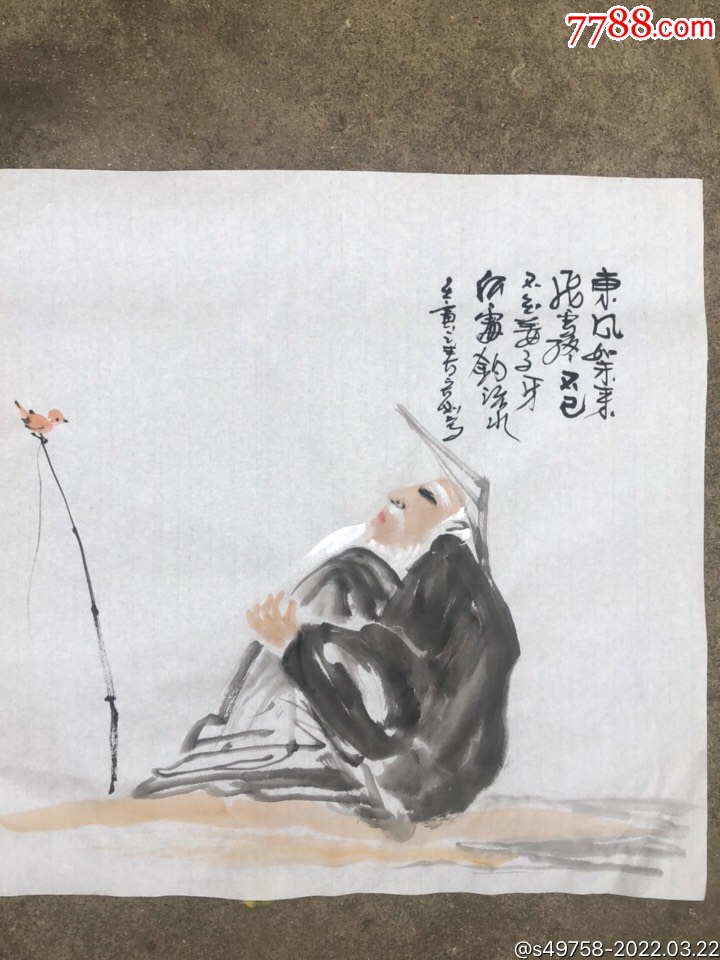 7788.com
東风如来
飛雪 不已
不知姜子牙
何處釣流水
壬寅之春 写
@s49758-2022.03.22